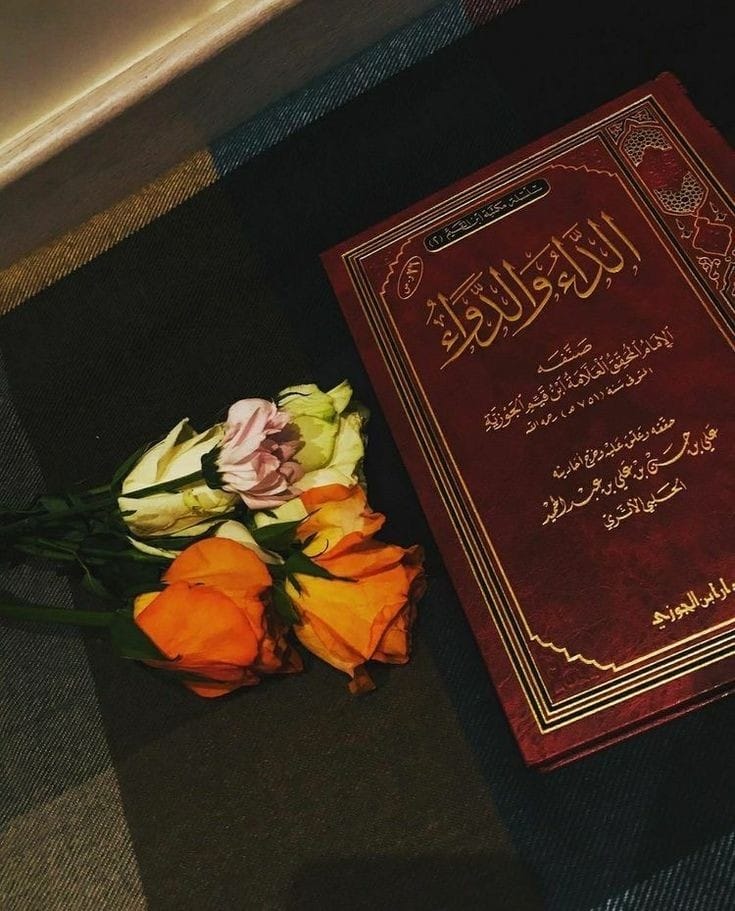 سلسلة مكتبة ابن القيم (٢)
الدَّاءُ وَالدَّوَاءُ
صَنَّفَه
الإمَامُ المُحَقِّقُ العَلَّامَةُ ابْنُ قَيِّمِ الجَوْزِيَّة
المتوفى سنة (٧٥١ هـ) رحمه الله
حققه وعلق عليه وخرج أحاديثه
علي بن حسن بن علي بن عبد الحميد
الحلبي الأثري
دار ابن الجوزي